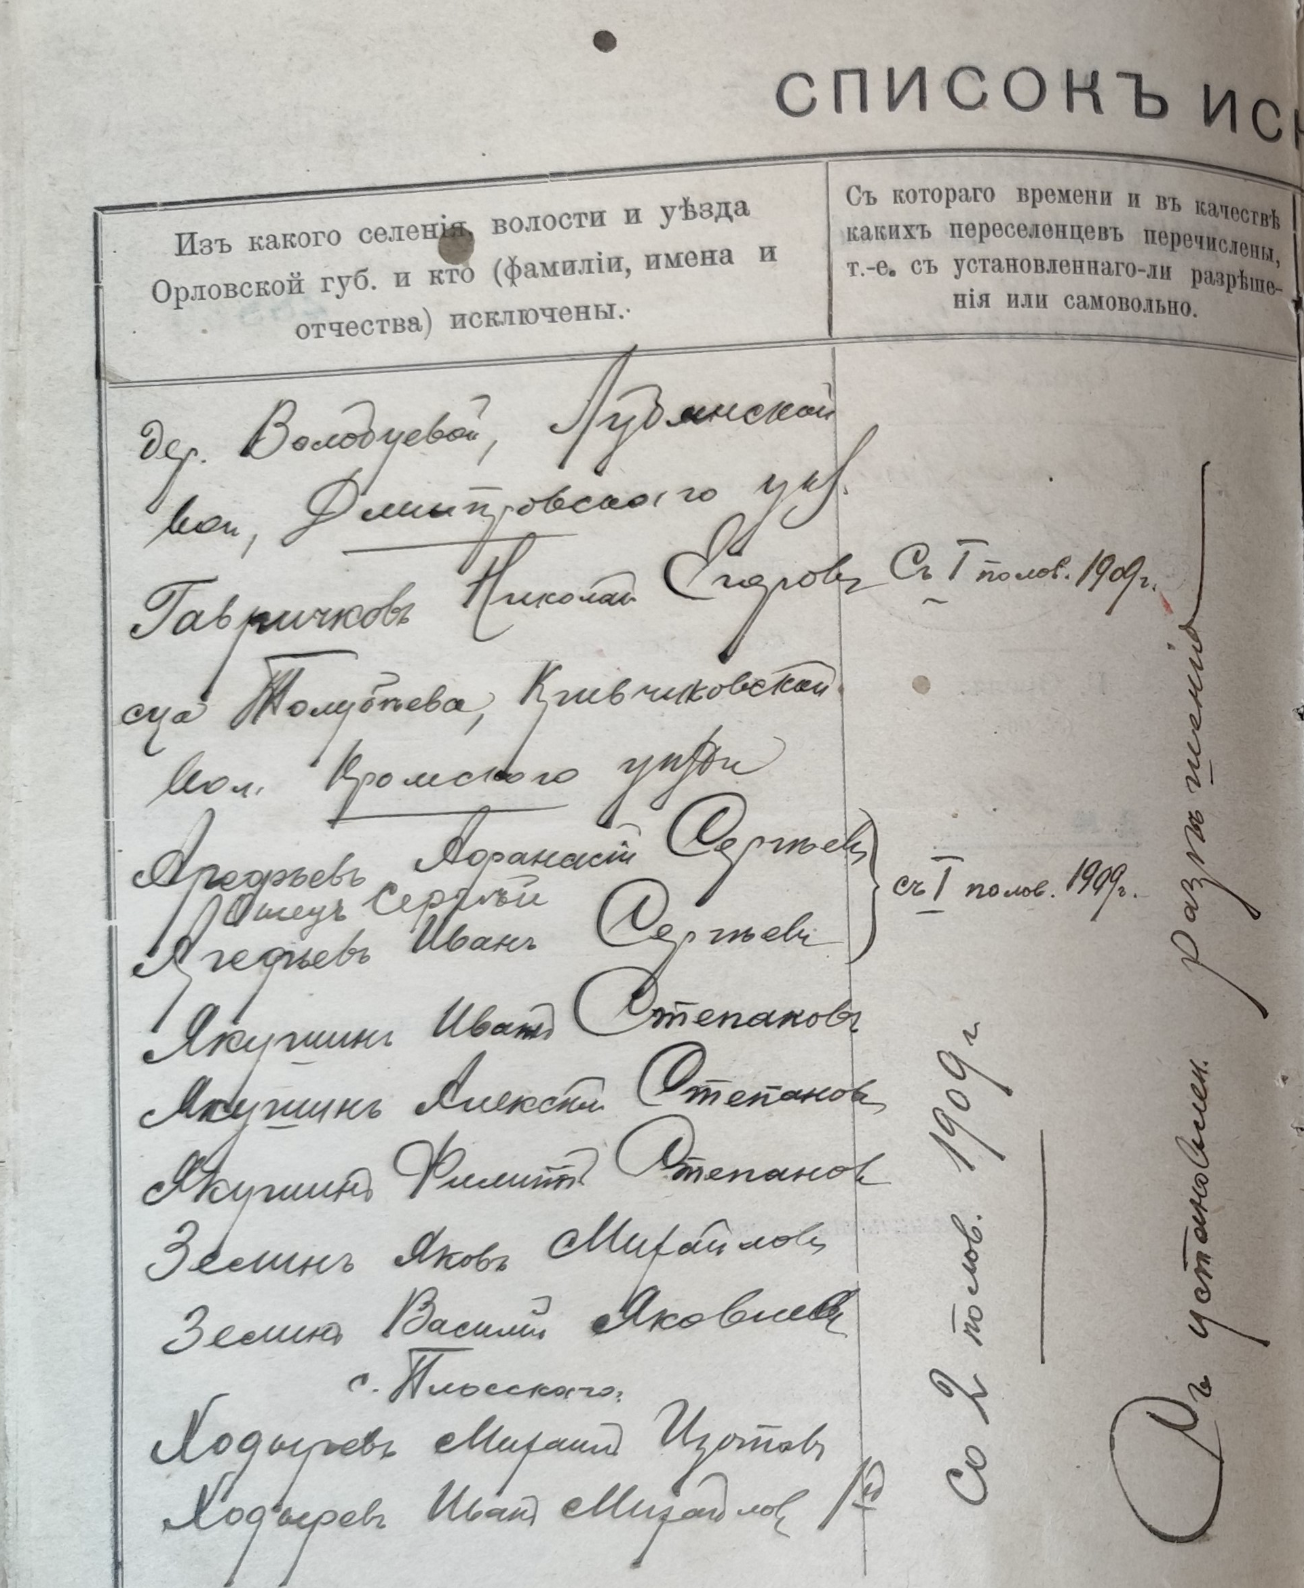 СПИСОКЪ ИСК
Изъ какого селенія, волости и уѣзда
Орловской губ. и кто (фамиліи, имена и
отчества) исключены.
Съ котораго времени и въ качествѣ
какихъ переселенцевъ перечислены,
т.-е. съ установленнаго-ли разрѣше-
нія или самовольно.
дер. Володуевой, Лубянской
вол, Дмитровскаго уѣз.
Гавричковъ Николай Егоровъ Съ I полов. 1909 г.
сца Голубѣева, Кривчиковской
вол. Кромского уѣзда
Арефьевъ Афанасій Сергѣевъ
Отецъ Сергѣй
Арефьевъ Иванъ Сергѣевъ
съ I полов. 1909 г.
Якушинъ Иванъ Степановъ
Якушинъ Алексѣй Степановъ
Якушинъ Филиппъ Степановъ
Зелинъ Яковъ Михайловъ
Зелинъ Василій Яковлевъ
с. Плосскаго:
Ходыревъ Михаилъ Изотовъ
Ходыревъ Иванъ Михайловъ
Со 2 полов. 1909 г
Съ установлен. разрѣшенія